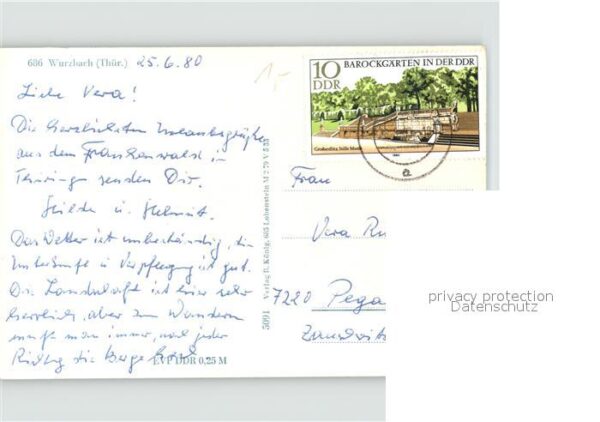 686 Wurzbach (Thür.) 25.6.80
Liebe Vera!
Die herzlichsten Urlaubsgrüße
aus dem Frankenwald in
Thüringen senden Dir
Hilde u. Helmut.
Das Wetter ist unbeständig, die
Unterkunft u. Verpflegung ist gut.
Die Landschaft ist hier sehr
herrlich, aber zum Wandern
muß man immer, nach jeder
Richtung die Berge hoch
EVP DDR 0,25 M
5091 Verlag R. König, 685 Lobenstein M 2 79 V 8 33
1,-
10
DDR
BAROCKGÄRTEN IN DER DDR
Großsedlitz, Stille Musik
a
Frau
Vera Ru
7220 Pega
privacy protection
Datenschutz